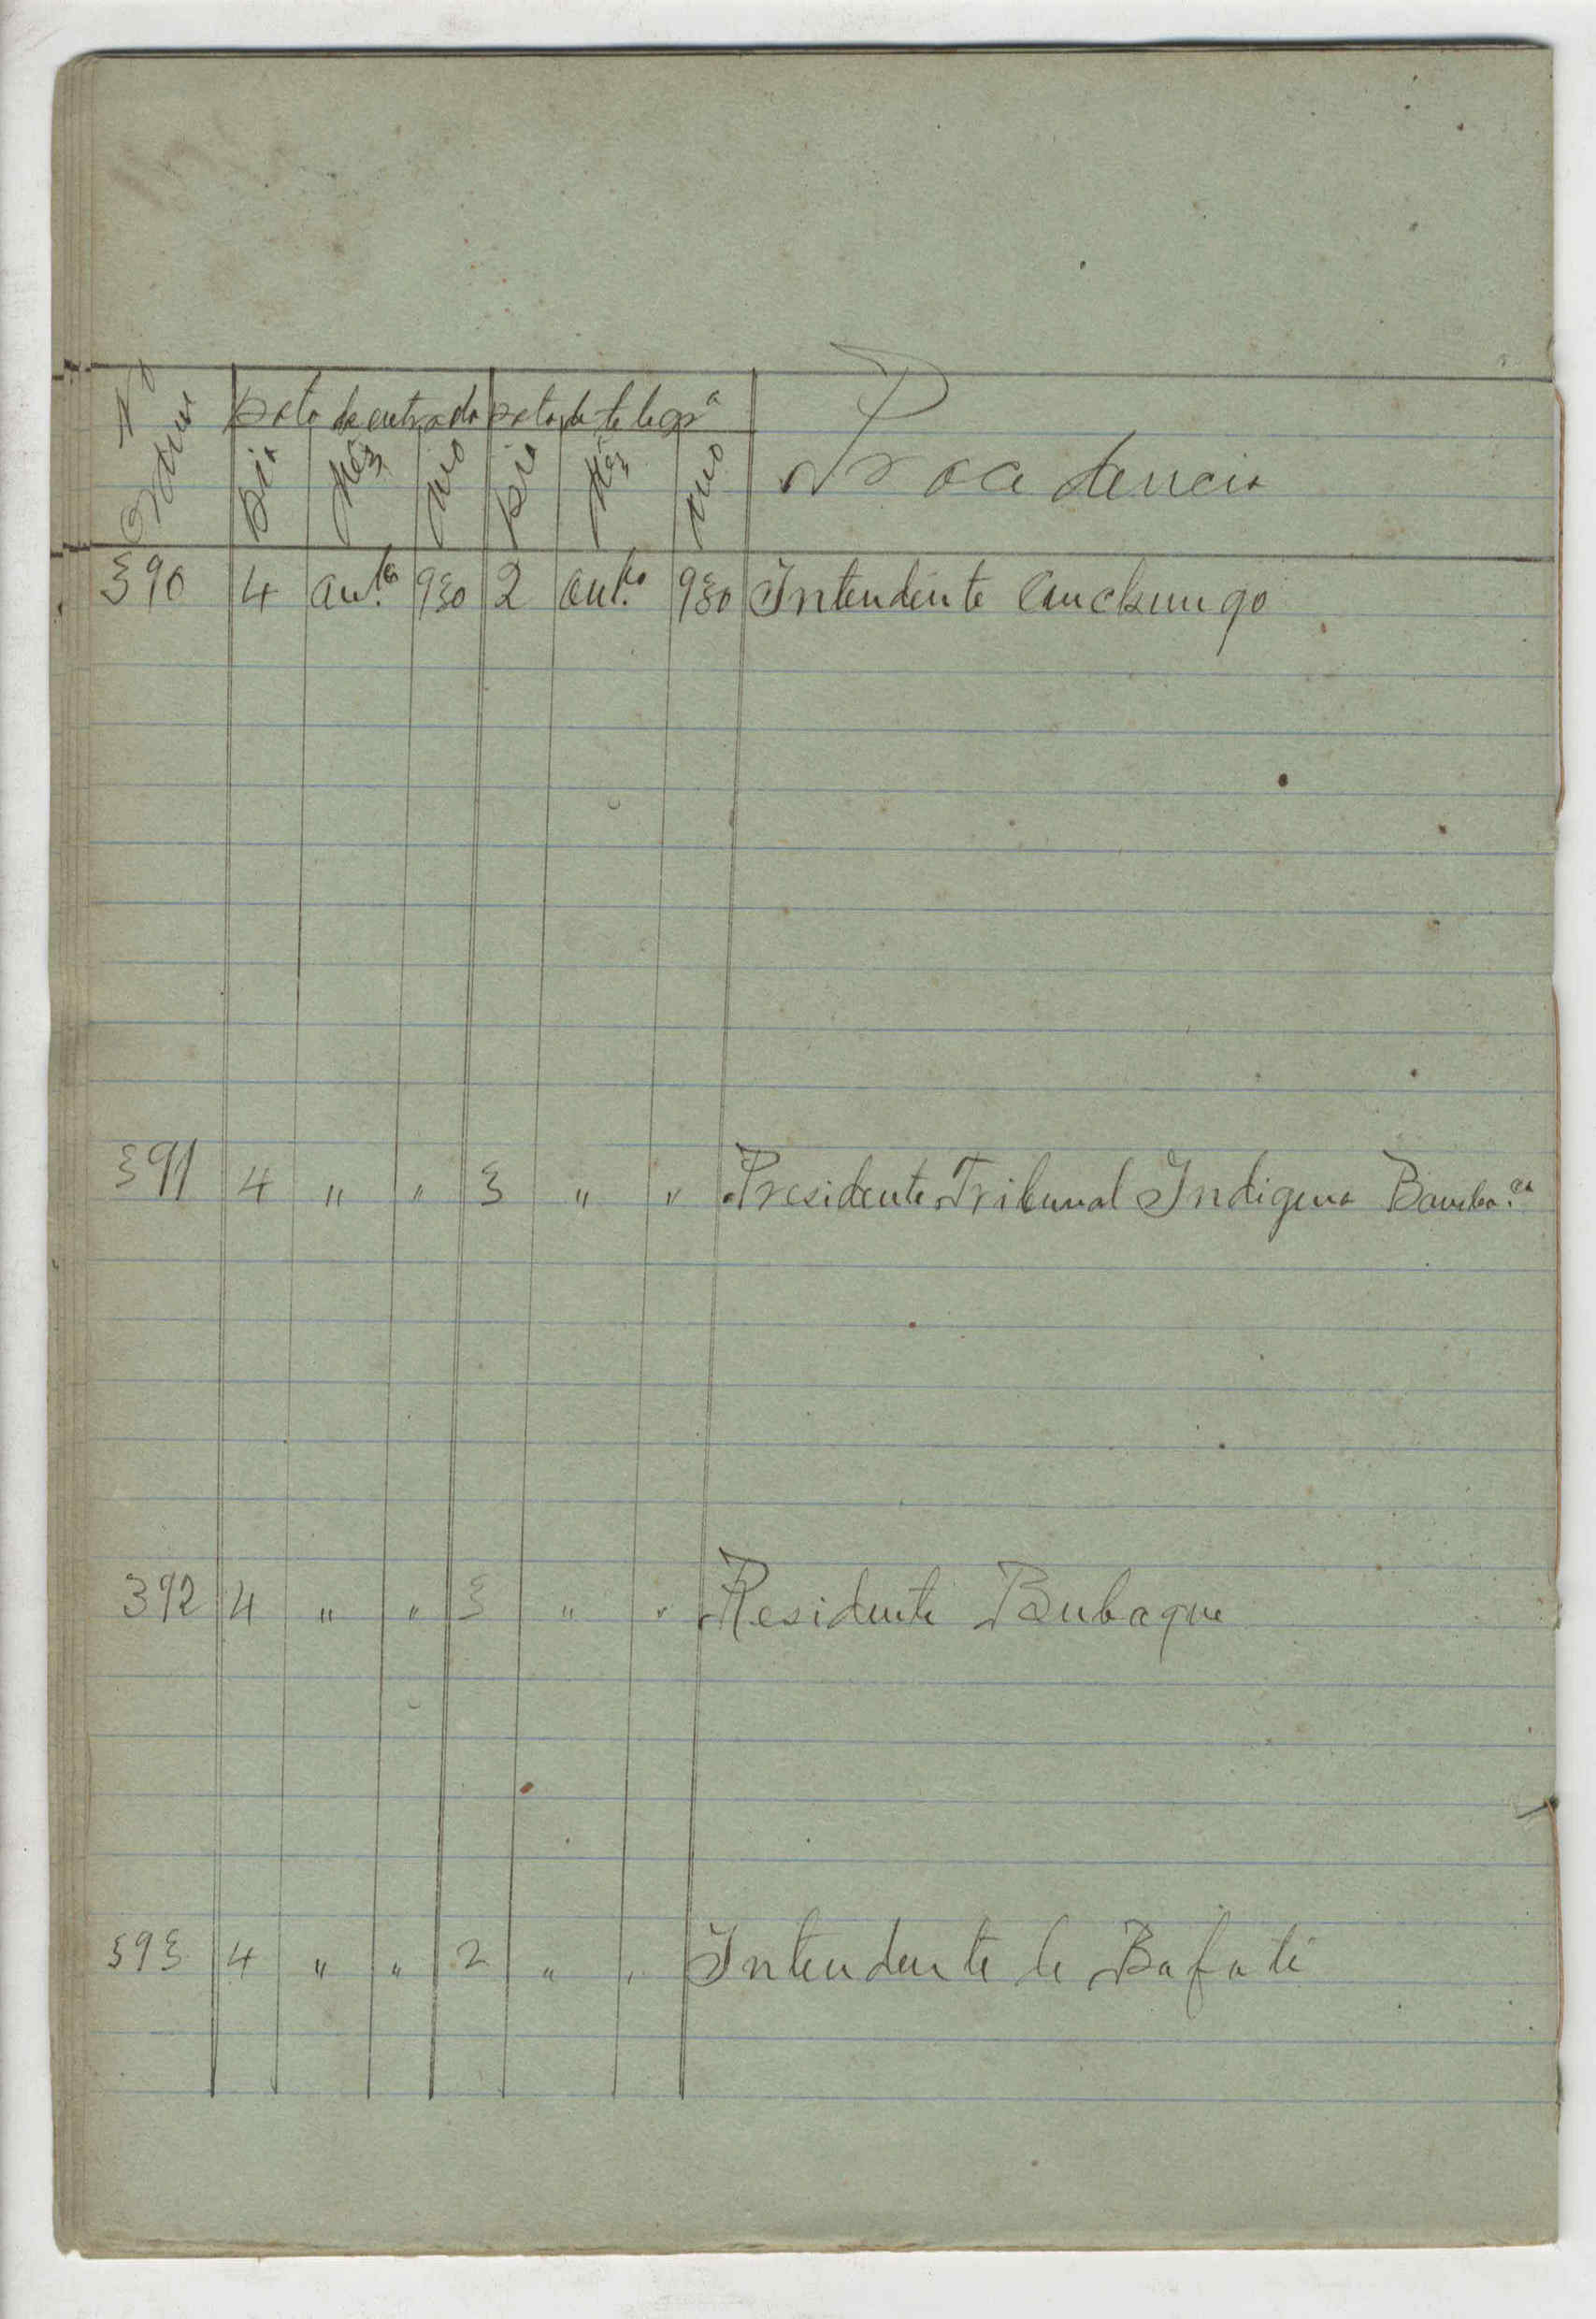 Nº Ordem | Data de entrada | Data de telegrª | Procedencia
Dia | Mêz | Ano | Dia | Mêz | Ano
390 | 4 | out.º | 930 | 2 | out.º | 930 | Intendente Canchungo
391 | 4 | " | " | 3 | " | " | Presidente Tribunal Indigena
392 | 4 | " | " | 3 | " | " | Residente Bubaque
393 | 4 | " | " | 2 | " | " | Intendente de Bafatá